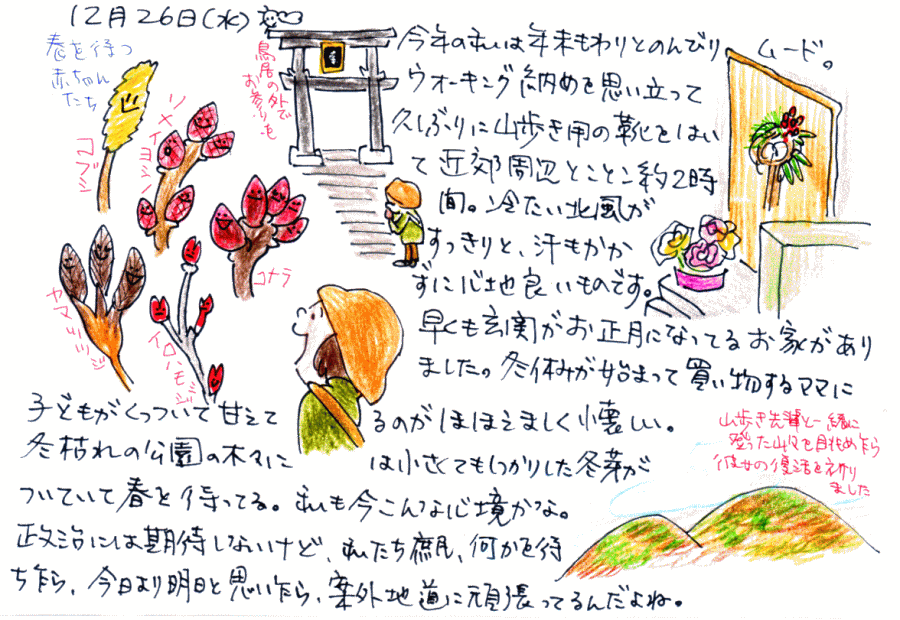 12月26日(水)
春を待つ
赤ちゃん
たち
コブシ
ソメイヨシノ
コナラ
ヤマツツジ
イロハモミジ
鳥居の外で
お参りも
今年の私は年末もわりとのんびり ムード。
ウオーキング納めを思い立って
久しぶりに山歩き用の靴をはい
て近郊周辺とことこ約2時
間。冷たい北風が
すっきりと、汗もかか
ずに心地良いものです。
早くも玄関がお正月になってるお家があり
ました。冬休みが始まって買い物するママに
子どもがくっついて甘えて るのがほほえましく懐しい。
冬枯れの公園の木々に は小さくてもしっかりした冬芽が
ついていて春を待ってる。私も今こんな心境かな。
政治には期待しないけど、私たち庶民、何かを待
ち乍ら、今日より明日と思い乍ら、案外地道に頑張ってるんだよね。
山歩き先輩と一緒に
登った山々を眺め乍ら
彼女の復活を祈り
ました